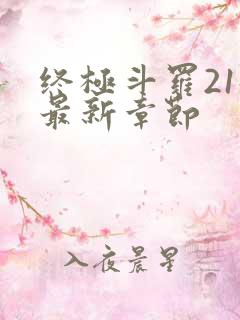 终極斗羅21
最新章節
入夜晨星